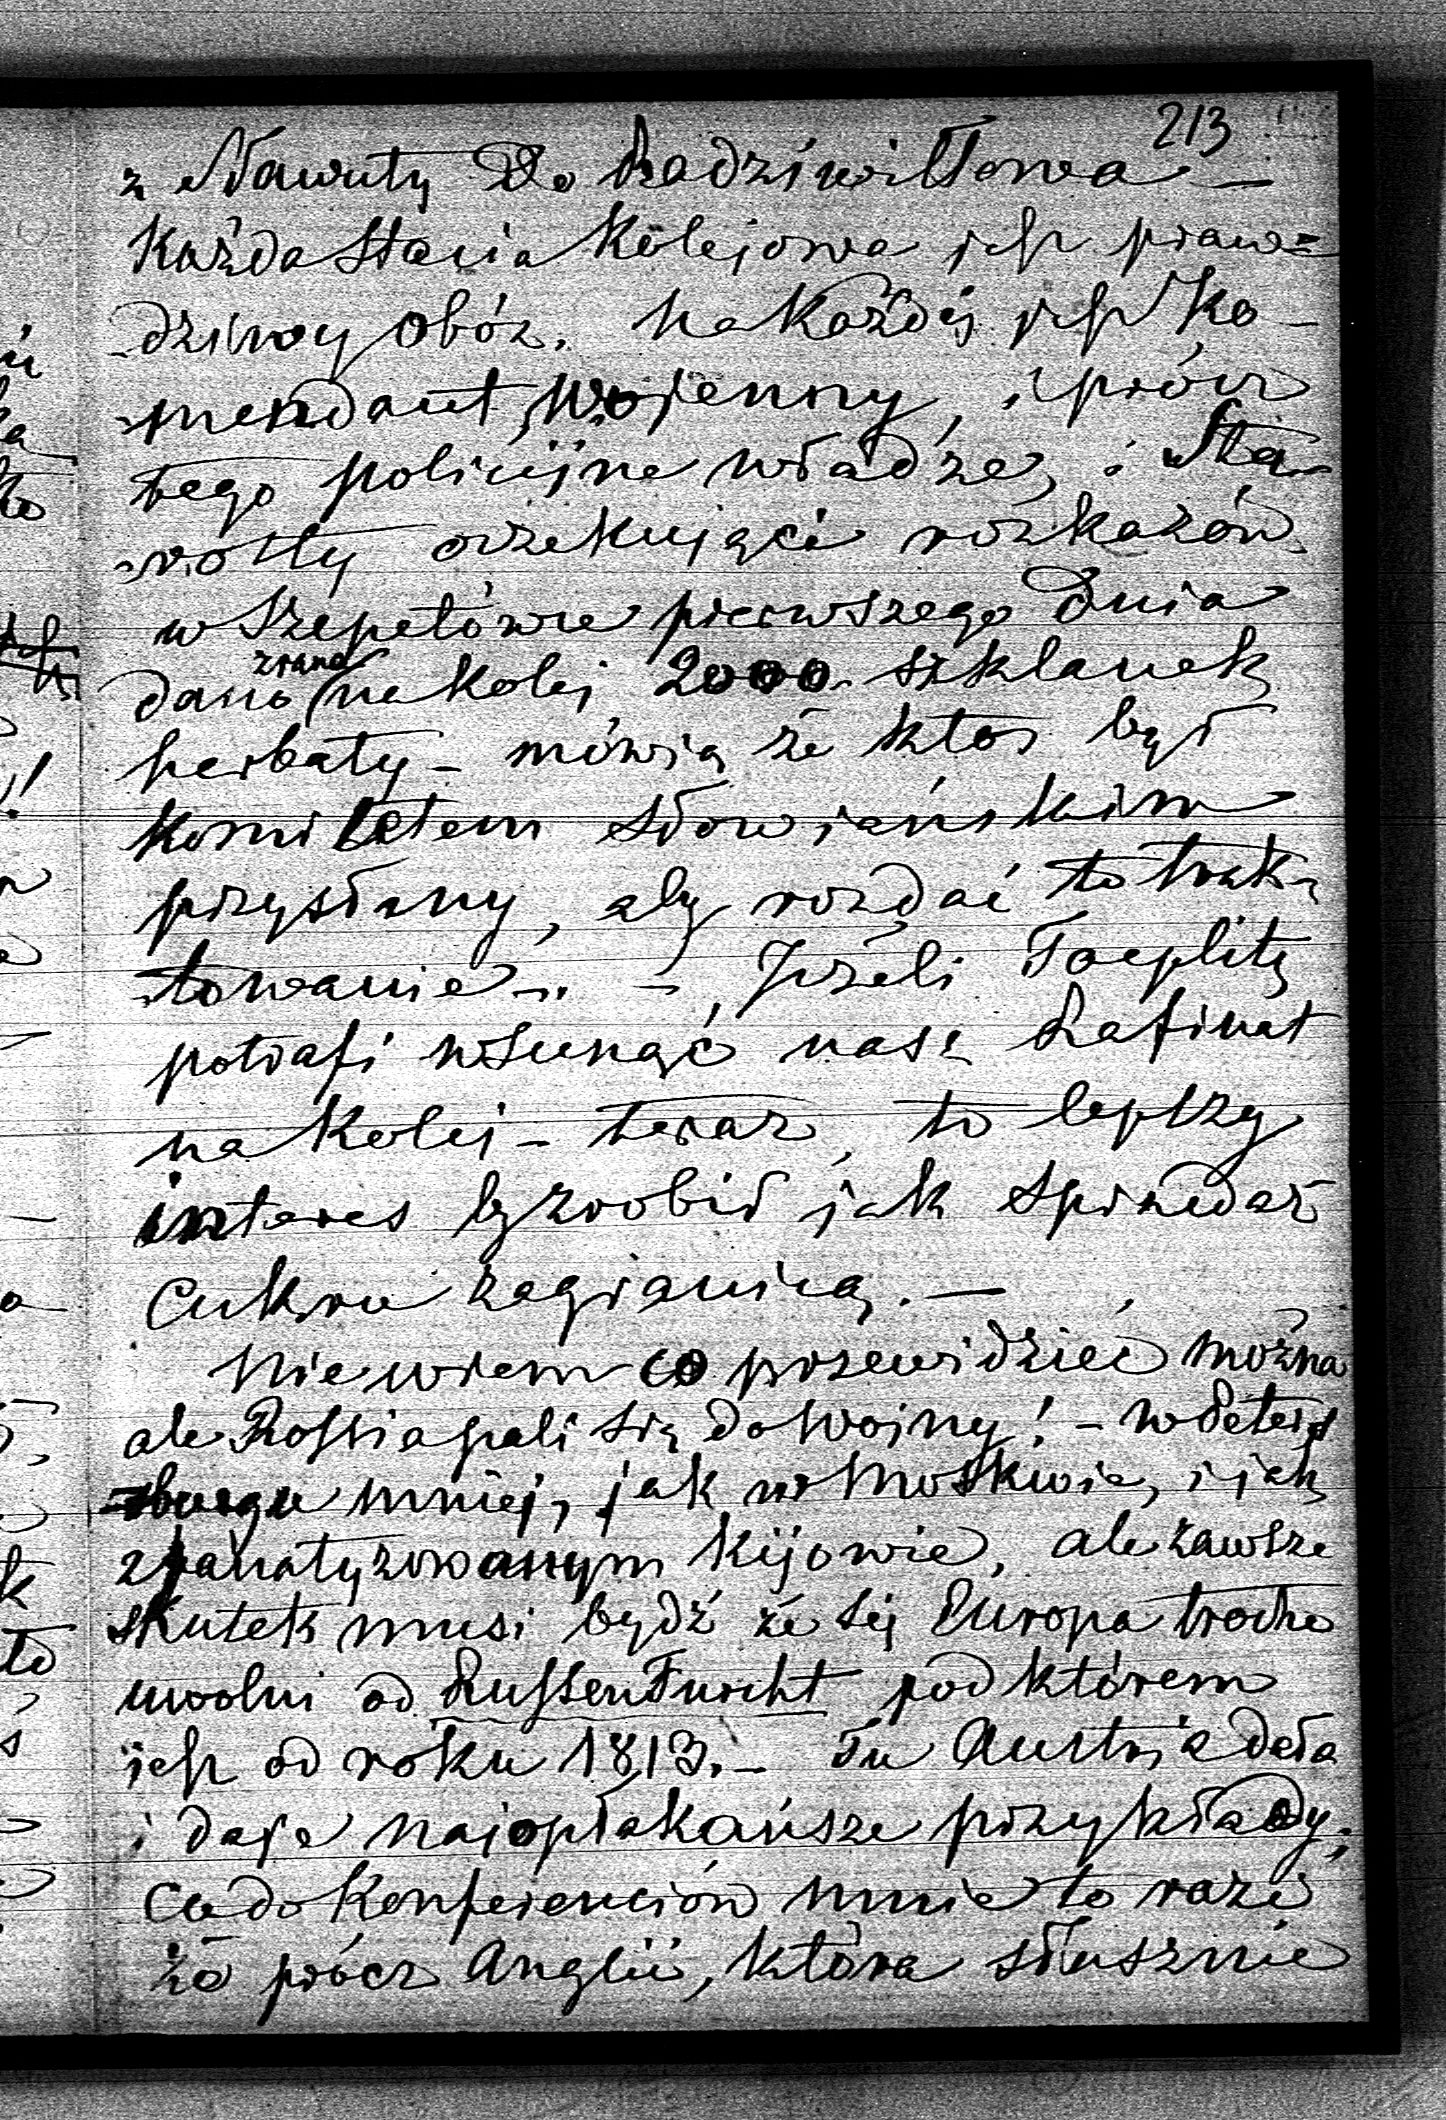 213
z Sławuty do Radziwiłłowa —
Każda stacia kolejowa jest praw=
-dziwy obóz. Na każdéj jest ko-
-mendant wojenny, i prócz
tego policijne władze, i sta-
-rosty oczekujące rozkazów.
w Szepetówce pierwszego dnia
dano zrana na kolej 2000 szklanek
herbaty – mówią że ktoś był
komitetem słowiańskim
przysłany, aby rozdać to trak-
-towanie... – Jeżeli Toeplitz
potrafi wsunąć nasz Rafinat
na kolej – teraz, to lepszy
interes by zrobił jak sprzedaż
cukru zagranicą. —
Nie wiem co przewidzieć można
ale Rossia pali się do wojny! – w Peters
-burgu mniej, jak w Moskwie, i jak
zfanatyzowanym Kijowie, ale zawsze
skutek musi bydź że się Europa trochę
uwolni od Russenfurcht pod którem
jest od roku 1813. – Tu Austria dała
i daje najopłakańsze przykłady;
Co do Konferenciów mnie to razi
że prócz Anglii, która słusznie